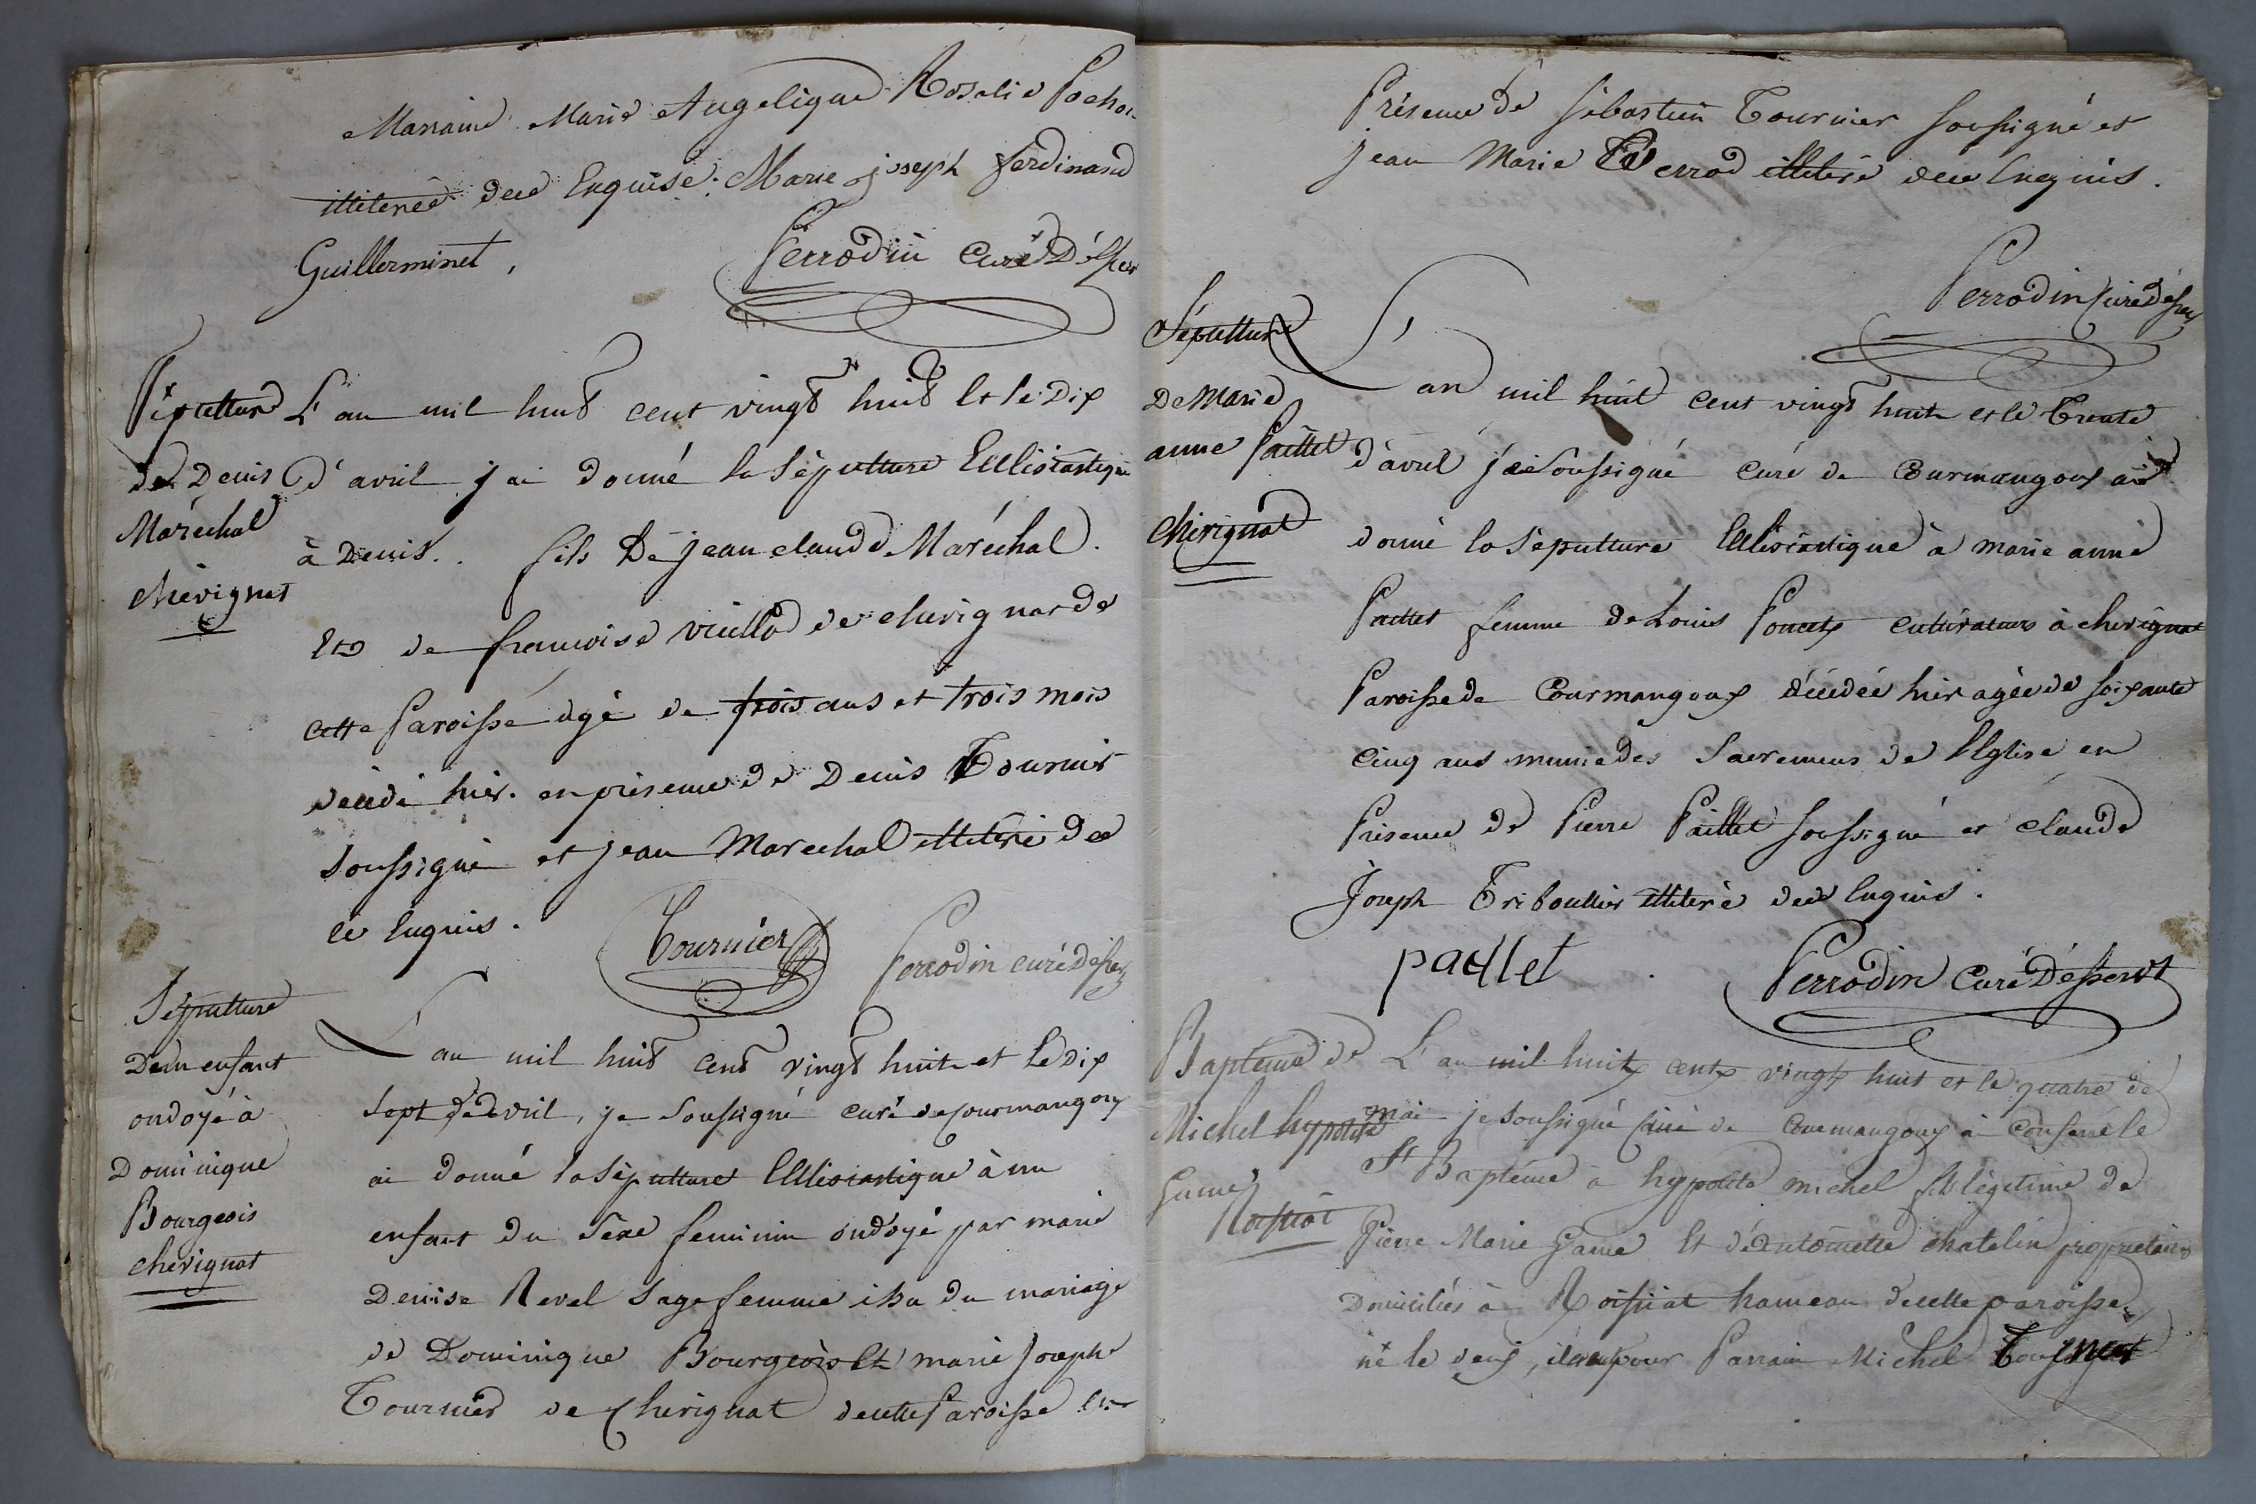 Marraine Marie Angelique Rosalie Pochon
illiterée dee Enquise. Marie joseph ferdinand
Guillerminet,
Perrodin Curé Désser
Sépulture
de Denis
Maréchal
chevignat
L'an mil huit cent vingt huit et le Dix
d'avril j ai donné la Sépulture Ecclésiastique
à Denis. . fils De jean claude Maréchal.
et de francoise vieillod de chevignat de
cette Paroisse agé de trois ans et trois mois
décédé hier. en présence de Denis Tournier
soussigné et jean Marechal illiteré de
ce Enquis.
Tournier
Perrodin curé Désser
Sépulture
D'un enfant
ondoyé à
Dominique
Bourgeois
chevignat
L'an mil huit cent vingt huit et le Dix
sept d'avril, je soussigné curé de Courmangoux
ai donné la Sépulture Ecclésiastique à un
enfant du Sexe feminin ondoyé par marie
Denise Revel Sage femme issu du mariage
de Dominique Bourgeois et marie Joseph
Tournier de Chevignat de cette Paroisse en
Présence de Sébastien Tournier soussigné et
jean Marie Perrod illiteré dee Enquis.
Perrodin Curé Désser
Sépulture
De Marie
anne Paillet
chevignat
L'an mil huit cent vingt huit et le Trente
d'avril j'ai soussigné curé de Courmangoux ai
donné la Sépulture Ecclésiastique à marie anne
Paillet femme de Louis Poncet cultivateurs à chevignat
Paroisse de Courmangoux décédée hier agée de soixante
cinq ans munie des Sacremens de l'Eglise en
Présence de Pierre Paillet soussigné et claude
Joseph Triboullier illiteré dee Enquis.
paillet
Perrodin Curé Désservt
Baptême de
Michel hypolite
Game
Roissiat
L'an mil huit cent vingt huit et le quatre de
mai je soussigné curé de Courmangoux ai conferé le
St Baptême à hypolite michel fils légitime de
Pierre Marie Game Et d'Antoinette chatelin propriétaires
Domiciliés à Roissiat hameau de cette paroisse
né le deux, il a eu pour Parrain Michel